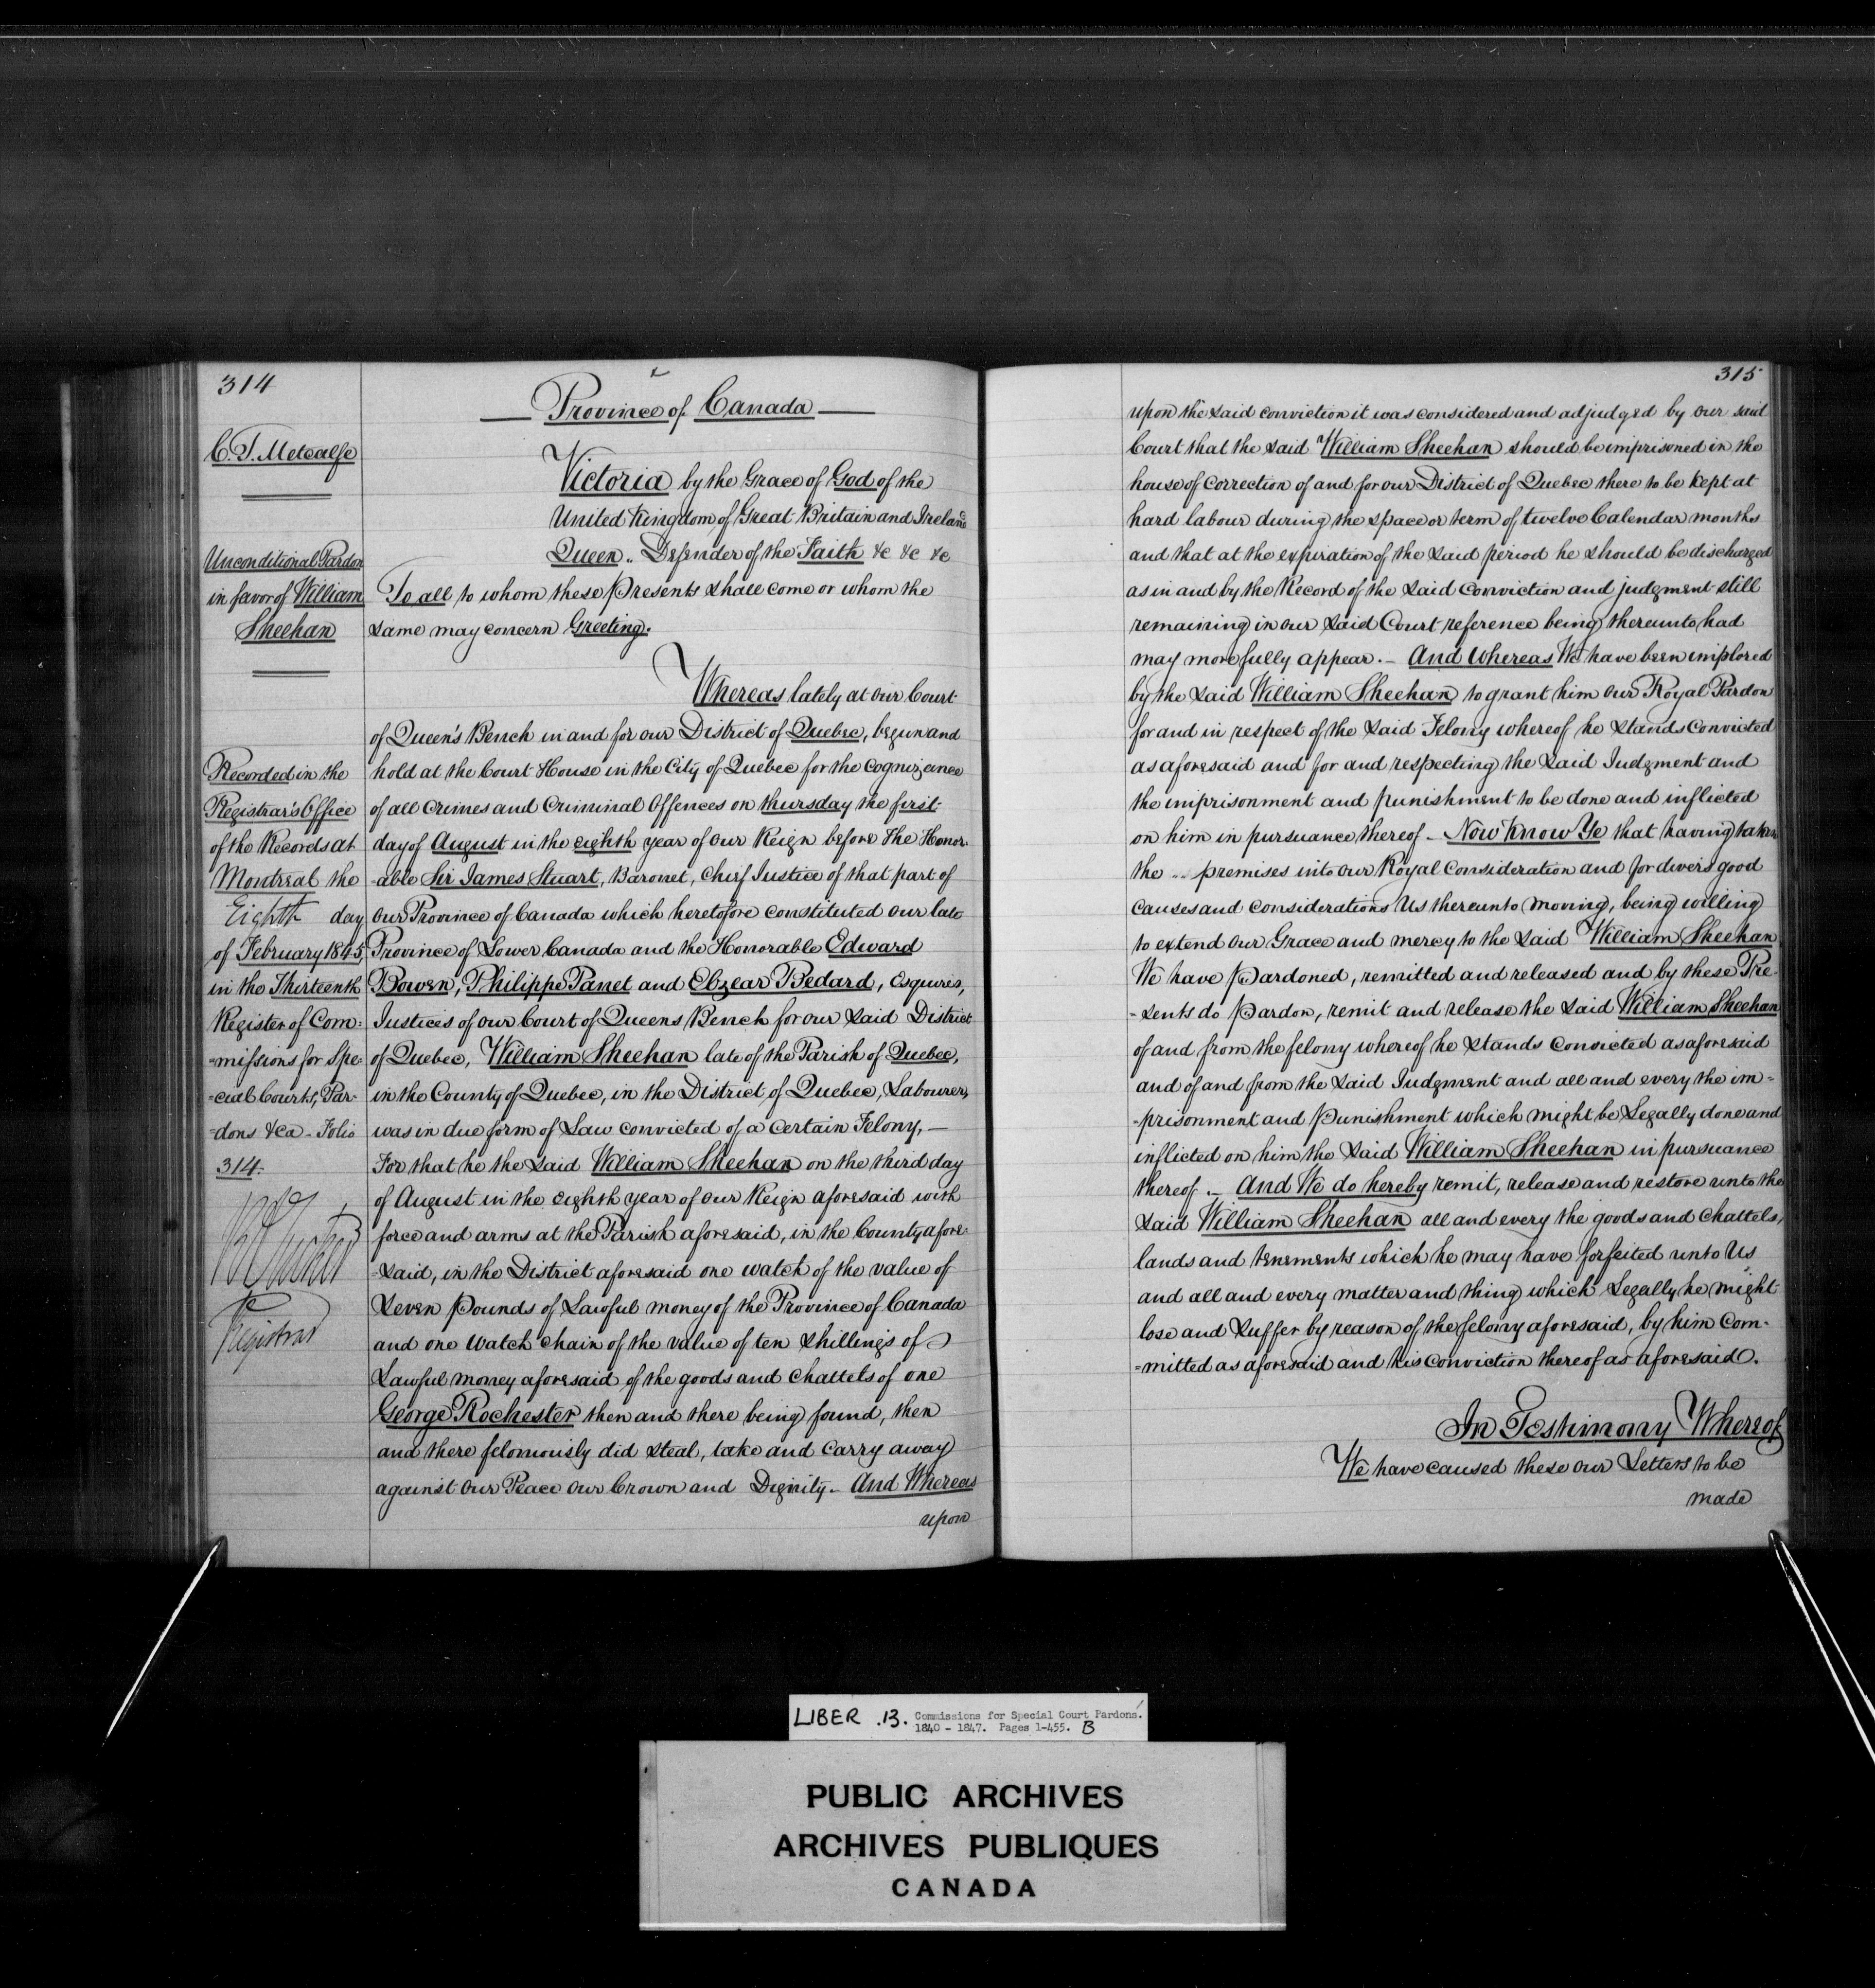 314
C. T. Metcalfe
Unconditional Pardon
in favor of William
Sheehan
Recorded in the
Registrar's Office
of the Records at
Montreal the
Eighth day
of February 1845,
in the Thirteenth
Register of Com=
=missions for Spe=
=cial Courts, Par-
=dons &ca - Folio
314.
Registrar
Province of Canada
Victoria by the Grace of God of the
United Kingdom of Great Britain and Ireland
Queen.. Defender of the Faith &c &c &c
To all to whom these Presents shall come or whom the
same may concern Greeting.
Whereas lately at our Court
of Queen's Bench in and for our District of Quebec, begun and
hold at the Court House in the City of Quebec for the Cognizance
of all Crimes and Criminal Offences on thursday the first
day of August in the eighth year of our Reign before The Honor-
-able Sir James Stuart, Baronet, Chief Justice of that part of
our Province of Canada which heretofore constituted our late
Province of Lower Canada and the Honorable Edward
Bowen, Philippe Panet and Elzear Bedard, Esquires,
Justices of our Court of Queens Bench for our said District
of Quebec, William Sheehan late of the Parish of Quebec,
in the County of Quebec, in the District of Quebec, Labourer,
was in due form of Law convicted of a Certain Felony, —
For that he the said William Sheehan on the third day
of August in the eighth year of our Reign aforesaid with
force and arms at the Parish aforesaid, in the County afore-
=said, in the District aforesaid one watch of the value of
seven pounds of Lawful money of the Province of Canada
and one watch chain of the value of ten shillings of
Lawful money aforesaid of the goods and chattels of one
George Rochester then and there being found, then
and there feloniously did steal, take and carry away
against our Peace our Crown and Dignity. And Whereas
upon
315
upon the said conviction it was considered and adjudged by our said
Court that the said William Sheehan should be imprisoned in the
house of Correction of and for our District of Quebec there to be kept at
hard labour during the space or term of twelve Calendar months
and that at the expiration of the said period he should be discharged
as in and by the Record of the said Conviction and judgment still
remaining in our said Court reference being thereunto had
may more fully appear. — And Whereas We have been implored
by the said William Sheehan to grant him our Royal Pardon
for and in respect of the said Felony whereof he stands Convicted
as aforesaid and for and respecting the said Judgment and
the imprisonment and punishment to be done and inflicted
on him in pursuance thereof — Now Know Ye that having taken
the .. premises into our Royal Consideration and for divers good
causes and considerations Us thereunto moving, being willing
to extend our Grace and mercy to the said William Sheehan
We have Pardoned, remitted and released and by these Pre-
-sents do Pardon, remit and release the said William Sheehan
of and from the felony whereof he stands Convicted as aforesaid
and of and from the said Judgment and all and every the im=
=prisonment and Punishment which might be Legally done and
inflicted on him the said William Sheehan in pursuance
thereof. — And We do hereby remit, release and restore unto the
said William Sheehan all and every the goods and Chattels,
lands and tenements which he may have forfeited unto Us
and all and every matter and thing which Legally he might
lose and suffer by reason of the felony aforesaid, by him Com-
=mitted as aforesaid and his conviction thereof as aforesaid.
In Testimony Whereof
We have caused these our Letters to be
made
LIBER .13. Commissions for Special Court Pardons.
1840 - 1847. Pages 1-455. B
PUBLIC ARCHIVES
ARCHIVES PUBLIQUES
CANADA